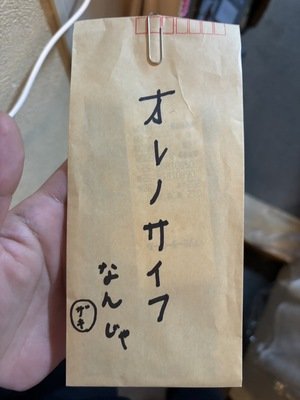 オレノサイフ
なんじゃ
ザキ